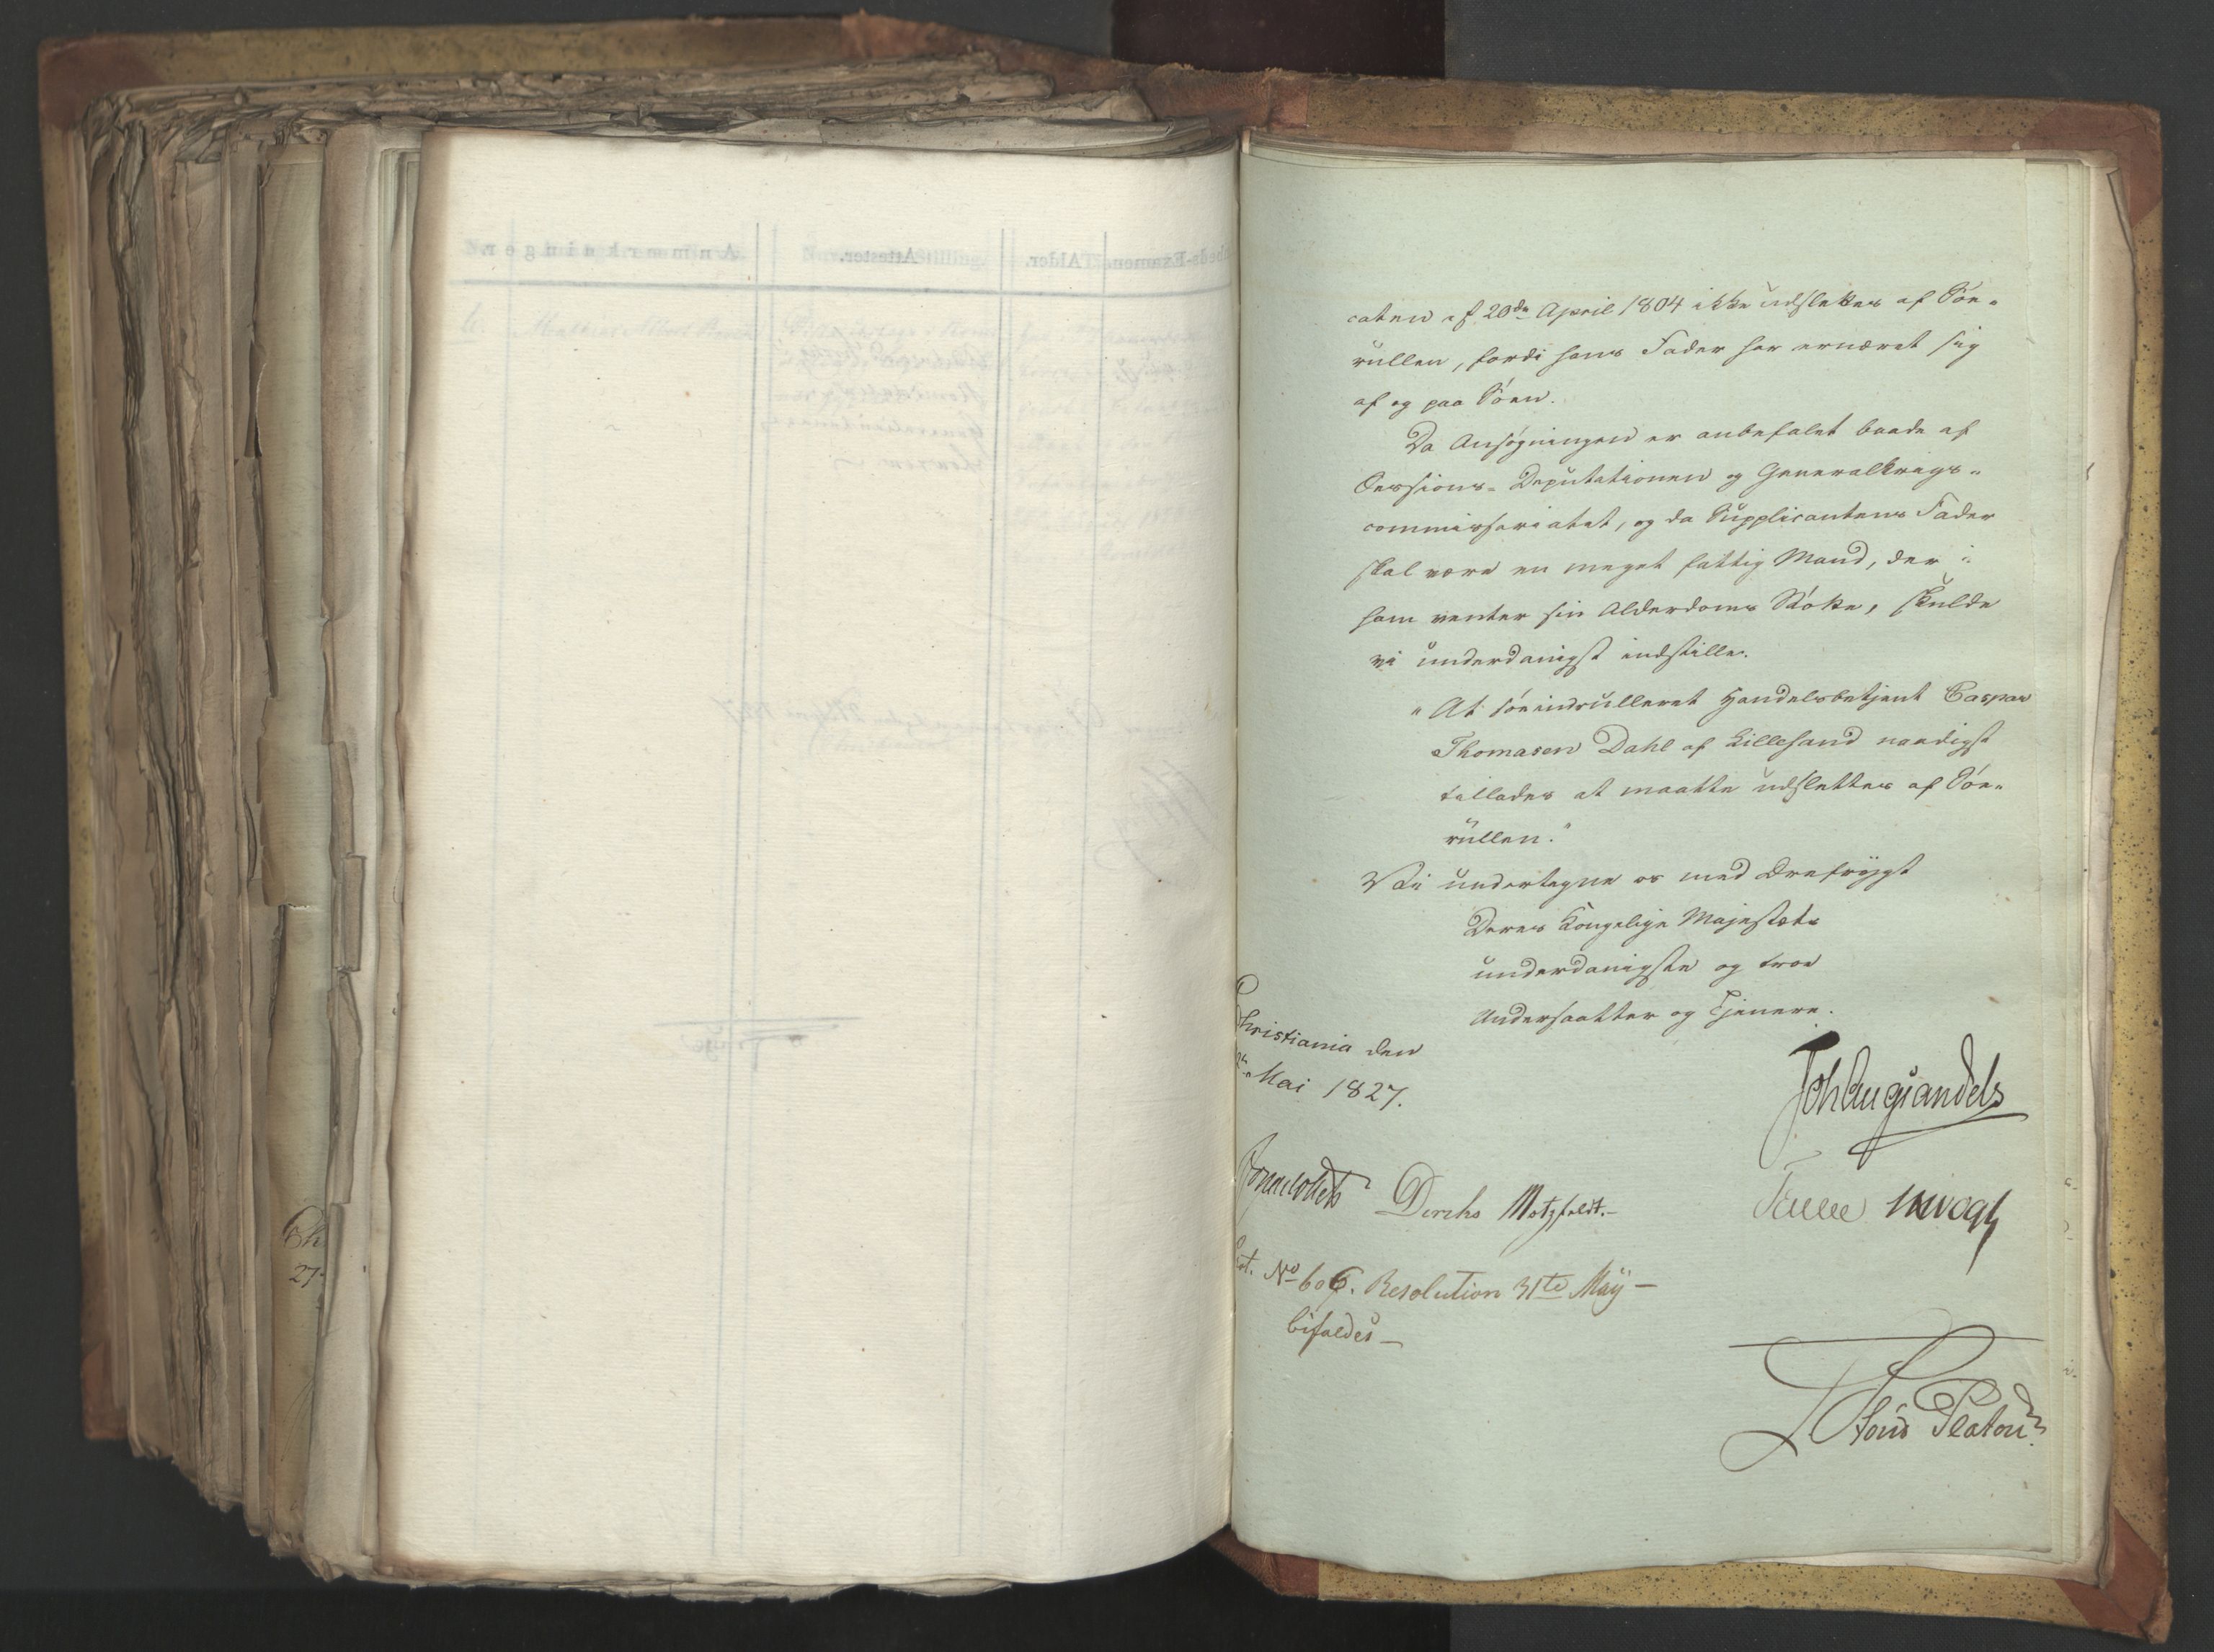 caten af 20de April 1804 ikke udslettes af Søe-
rullen, fordi hans Fader har ernæret sig
af og paa Søen.
Da Ansøgningen er anbefalet baade af
Sessions-Deputationen og Generalkrigs-
commissariatet, og da Supplicantens Fader
skal være en meget fattig Mand, der i
ham venter sin Alderdoms Støtte, skulde
vi underdanigst indstille:
"At søeindrulleret Handelsbetjent Caspar
Thomasen Dahl af Lillesand naadigst
tillades at maatte udslettes af Søe-
rullen."
Vi undertegne os med Ærefrygt
Deres Kongelige Majestæts
underdanigste og troe
Undersaatter og Tjenere.
Christiania den
Mai 1827.
Joh Aug Sandels
Collett Diriks Motzfeldt.
Vogt
No 606. Resolution 31te May
bifaldes
Stoud Platou
Ch
27